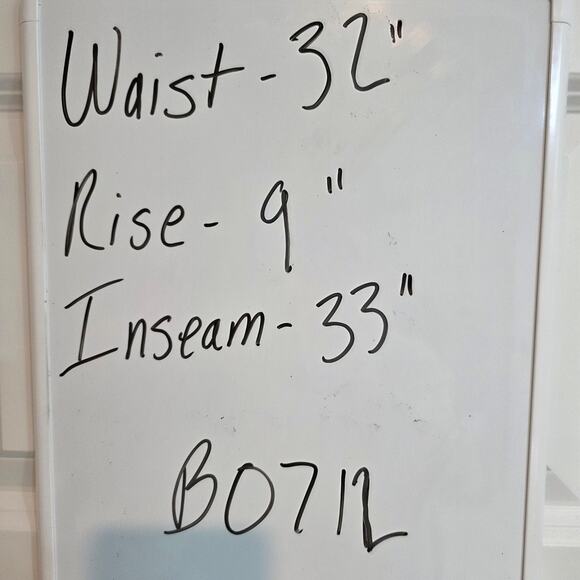 Waist - 32"
Rise - 9"
Inseam - 33"
B0712